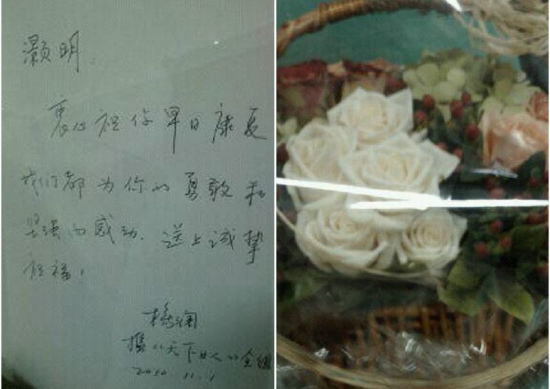 灏明:
衷心祝你早日康复
我们都为你的勇敢和
坚强而感动. 送上诚挚
祝福!
杨澜
携《天下女人》全组
2010. 11. 1